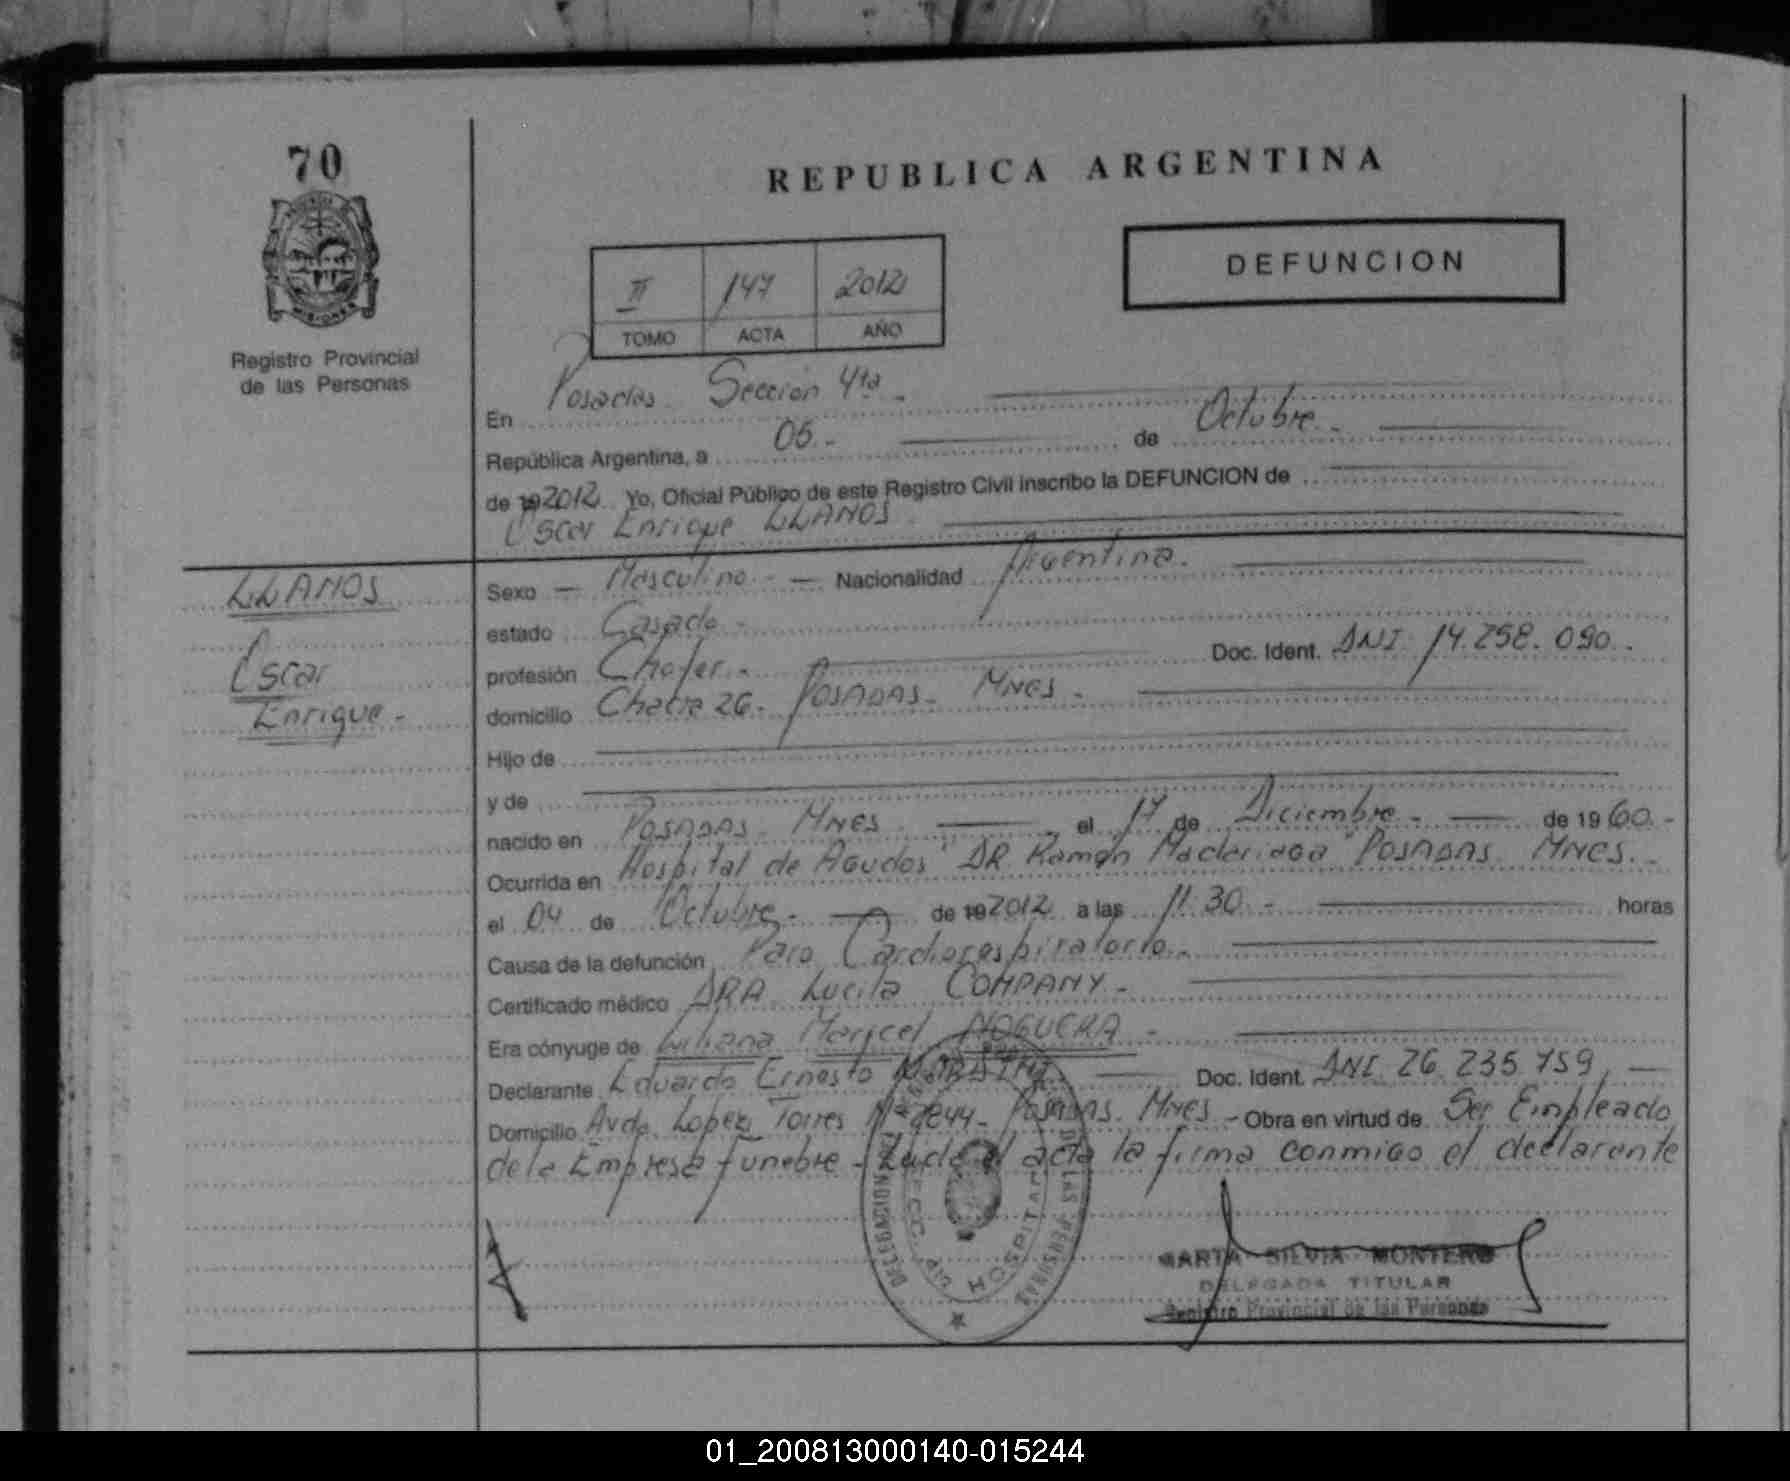 70
MISIONES
Registro Provincial
de las Personas
REPUBLICA ARGENTINA
DEFUNCION
II 147 2012
TOMO ACTA AÑO
En Posadas Sección 4ta.-
República Argentina, a 05.- de Octubre.-
de 19 2012 Yo, Oficial Público de este Registro Civil inscribo la DEFUNCION de
Oscar Enrique LLANOS.
LLANOS
Oscar
Enrique.-
Sexo — Masculino.- — Nacionalidad Argentina.
estado Casado.-
profesión Chofer.- Doc. Ident. DNI 14.258.090.-
domicilio Chacra 26.- POSADAS- MNES.-
Hijo de
y de
nacido en POSADAS- MNES. el 17 de Diciembre.- de 19 60.-
Ocurrida en Hospital de Agudos "DR. Ramón Madariaga" POSADAS. MNES.-
el 04 de Octubre.- de 19 2012 a las 11:30.- horas
Causa de la defunción Paro Cardiorespiratorio.-
Certificado médico DRA Lucila COMPANY.-
Era cónyuge de Liliana Maricel NOGUERA.-
Declarante Eduardo Ernesto Doc. Ident. DNI 26.235.759,
Domicilio Avda. Lopez Torres N° 2844- POSADAS. MNES.- Obra en virtud de Ser Empleado
de la Empresa funebre.- Leida el acta la firma conmigo el declarante
DELEGACION
DE LAS PERSONAS
HOSPITAL
MARTA SILVIA MONTERO
DELEGADA TITULAR
Registro Provincial de las Personas
01_200813000140-015244